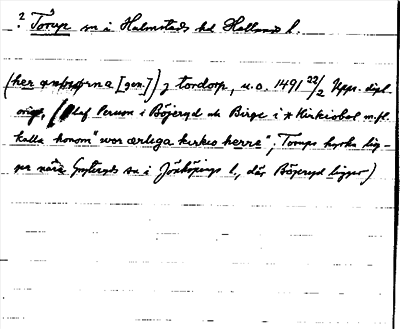 ? Torup sn i Halmstads hd Hallands l.
(her [gen.]) j tordorp, u.o. 1491 22/2 Upps. dipl.
orig. (Olaf Person i Böjeryd ok Birge i * Kirkiobol m.fl.
kalla honom "wor ærliga kirkio herre"; Torups kyrka lig-
ger nära sn i Jönköpings l., där Böjeryd ligger)